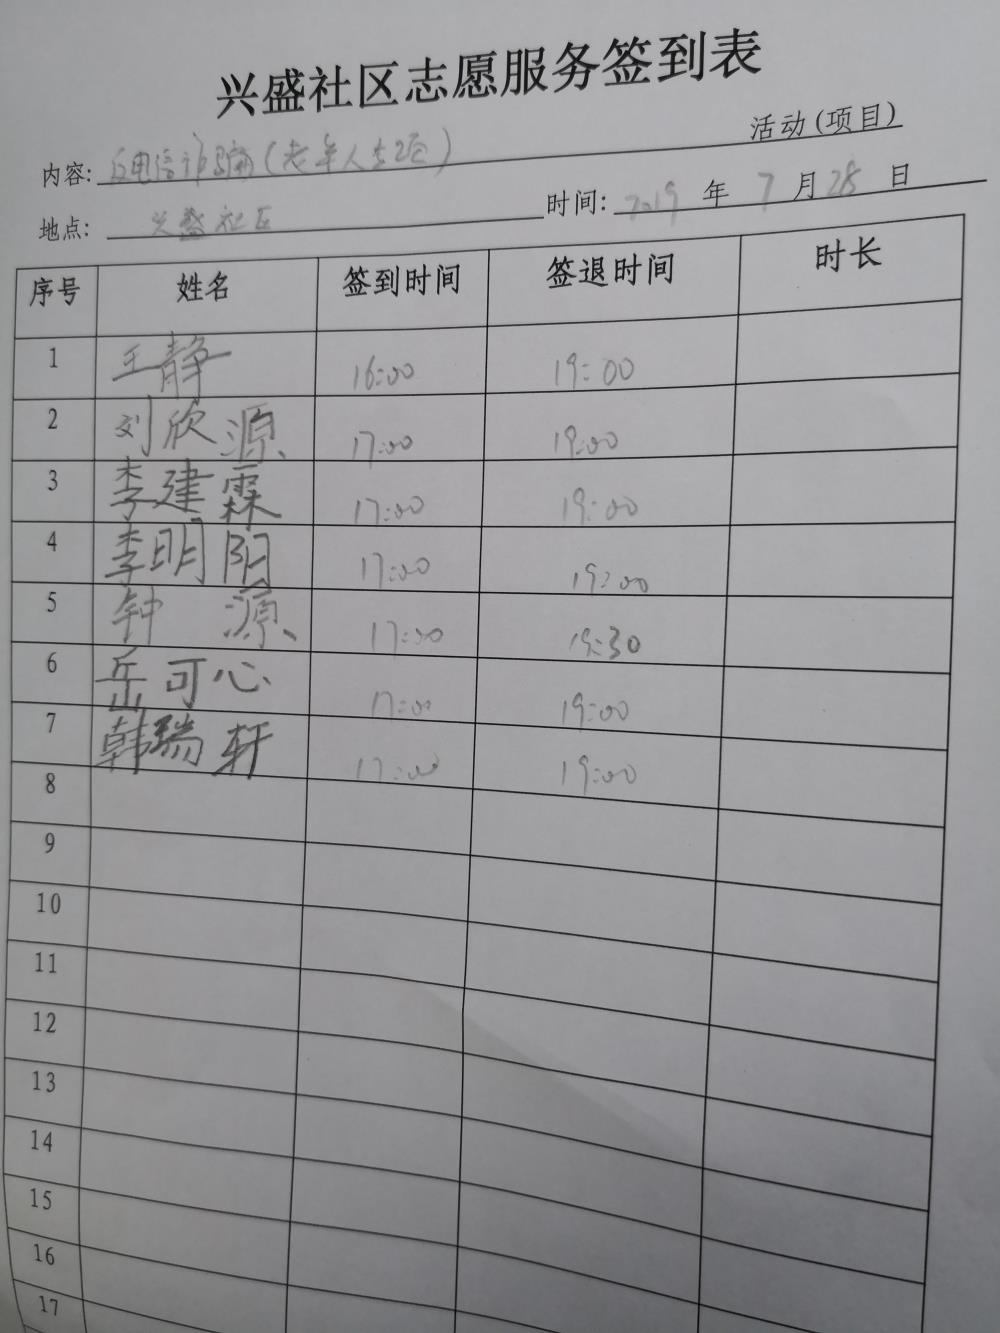 兴盛社区志愿服务签到表
内容: 反电信诈骗(老年人专场) 活动(项目)
地点: 兴盛社区 时间: 2019 年 7 月 28 日
序号 姓名 签到时间 签退时间 时长
1 王静 16:00 19:00
2 刘欣源 17:00 19:00
3 李建霖 17:00 19:00
4 李明阳 17:00 19:00
5 钟源 17:00 19:30
6 岳可心 17:00 19:00
7 韩瑞轩 17:00 19:00
8
9
10
11
12
13
14
15
16
17